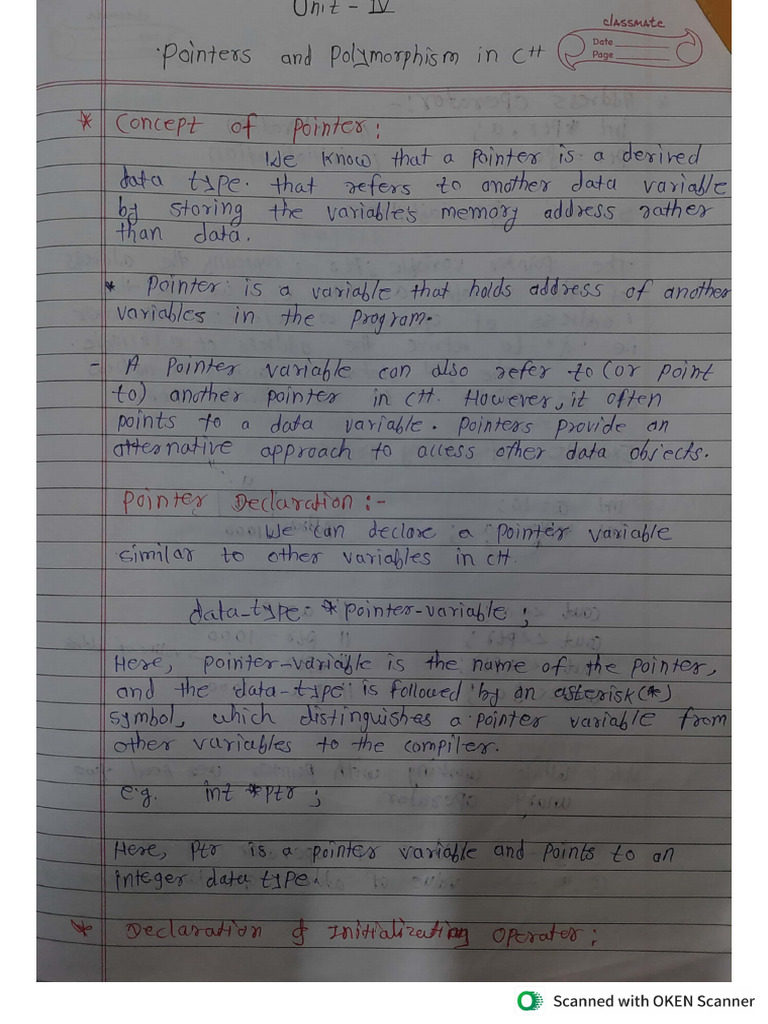 Unit - IV
classmate
Date
Page
Pointers and Polymorphism in C++
* Concept of Pointer:
We know that a Pointer is a derived
data type. that refers to another data variable
by storing the variable's memory address rather
than data.
* Pointer is a variable that holds address of another
variables in the Program.
- A Pointer variable can also refer to (or point
to) another pointer in C++. However, it often
points to a data variable. Pointers provide an
alternative approach to access other data objects.
Pointer Declaration :-
We can declare a Pointer variable
similar to other variables in C++.
data-type *pointer-variable ;
Here, pointer-variable is the name of the Pointer,
and the data-type is followed by an asterisk(*)
symbol, which distinguishes a pointer variable from
other variables to the compiler.
e.g. int *ptr ;
Here, Ptr is a pointer variable and points to an
integer data type.
* Declaration & Initializating Operator:
Scanned with OKEN Scanner